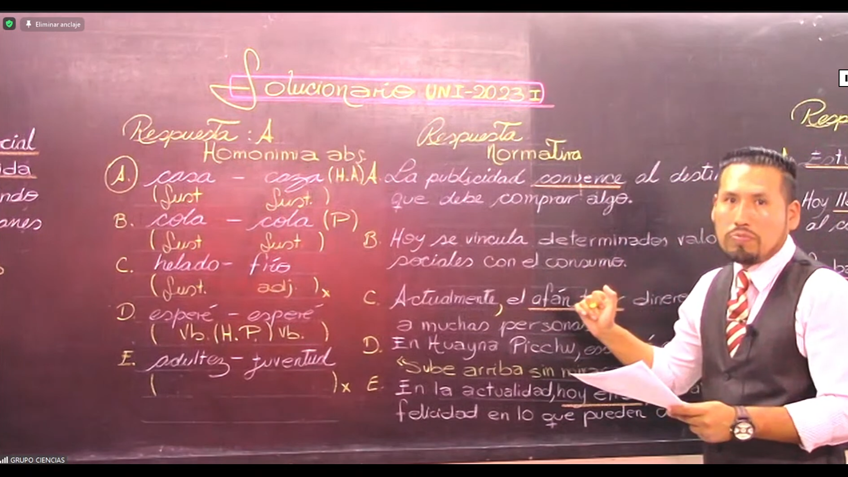 Eliminar anclaje
Solucionario UNI-2023 I
cial
ida
ando
anes
Respuesta: A
Homonimia abs.
A. casa - caza (H.A)
(Sust Sust.)
B. cola - cola (P)
(Sust Sust)
C. helado - frío
(Sust. adj.)x
D. esperé - esperé
(Vb.(H.P.) Vb.)
E. adultez - juventud
( )x
Respuesta
Normativa
A. La publicidad convence al desti
que debe comprar algo.
B. Hoy se vincula determinados valo
sociales con el consumo.
C. Actualmente, el afán dinero
a muchas personas
D. En Huayna Picchu,
"Sube arriba sin
E. En la actualidad, hoy en
felicidad en lo que pueden
Resp
Estu
Hoy
al c
GRUPO CIENCIAS